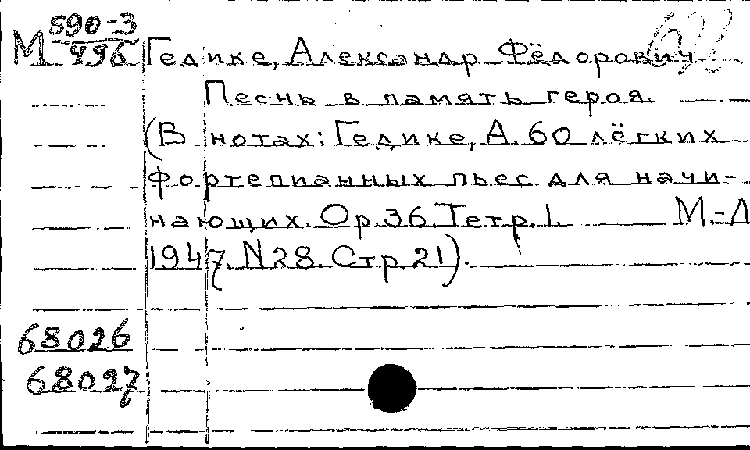 М 590-3
996
Гедике, Александр Фёдорович
Песнь в память героя.
(В нотах: Гедике, А. 60 лёгких
фортепианных пьес для начи-
нающих. Ор. 36. Тетр. I. М.-Л
1947. N 28. Стр. 21).
68026
68027